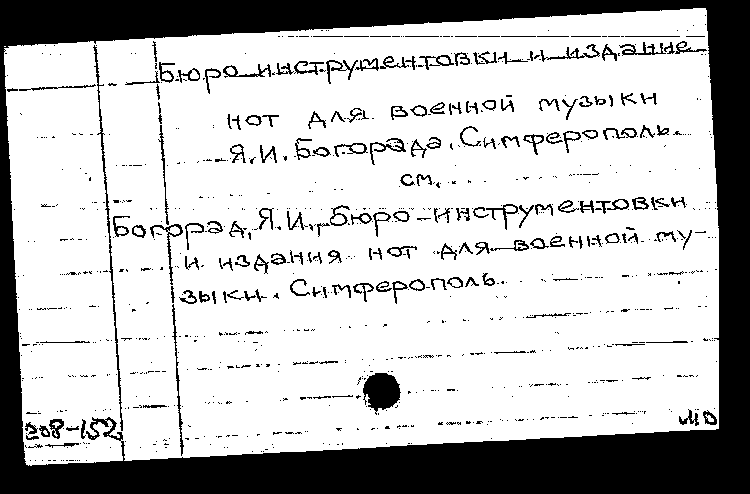 Бюро инструментовки и издание
нот для военной музыки
Я.И. Богорада. Симферополь.
см.
Богорад, Я.И., Бюро инструментовки
и издания нот для военной му-
зыки. Симферополь.
208-152